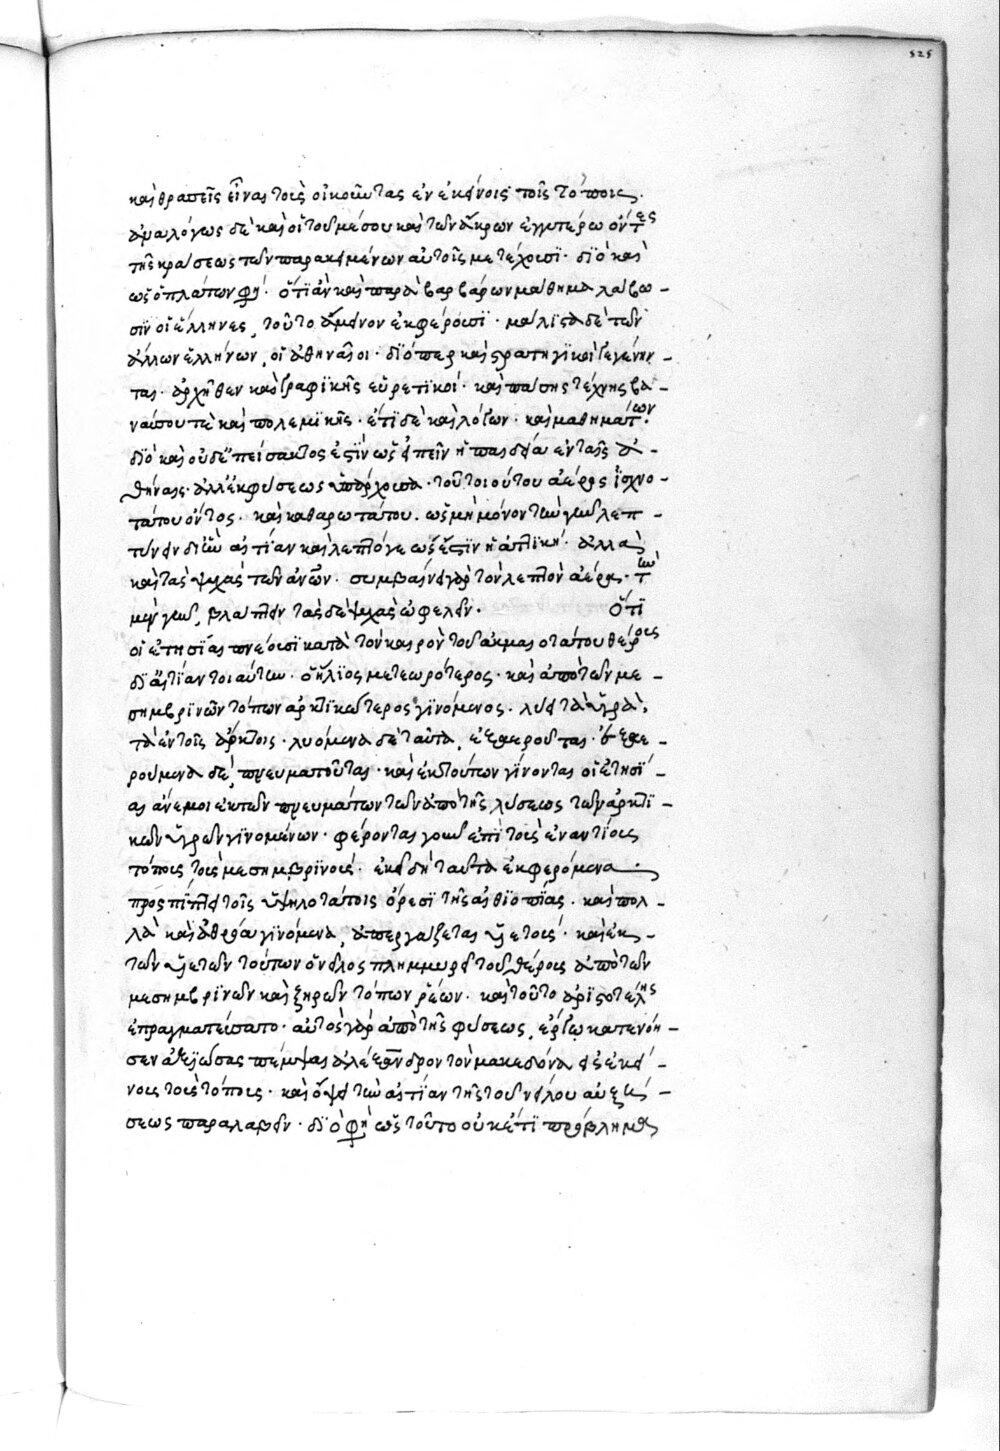 525
καὶ θρασεῖς εἶναι τοὺς οἰκοῦντας ἐν ἐκείνοις τοῖς τόποις.
ἀναλόγως δὲ καὶ οἱ τοῦ μέσου καὶ τῶν ἄκρων ἐγγυτέρω ὄντες
τῆς κράσεως τῶν παρακειμένων αὐτοῖς μετέχουσϊ· διὸ καὶ
ὡς ὁ πλάτων φη(σί)· ὅτϊ ἂν καὶ παρὰ βαρβάρων μάθημα λάβω-
σϊν οἱ ἕλληνες, τοῦτο ἄμεινον ἐκφέρουσϊ· μάλϊστα δὲ τῶν
ἄλλων ἑλλήνων, οἱ ἀθηναῖοι· διόπερ καὶ στρατηγϊκοὶ γεγένην-
ται· ἀρχῆθεν καὶ γραφϊκῆς εὑρετϊκοί· καὶ πάσης τέχνης βα-
ναύσου τὲ καὶ πολεμϊκῆς· ἔτϊ δὲ καὶ λόγων· καὶ μαθημάτων·
διὸ καὶ οὐδ' ἐπείσακτος ἐστϊν ὡς εἰπεῖν ἡ παιδεία ἐν ταῖς ἀ-
θήναις· ἀλλ' ἐκ φύσεως ὑπάρχουσα· τοῦ τοιούτου ἀέρος ἰσχνο-
τάτου ὄντος· καὶ καθαρωτάτου. ὡς μὴ μόνον τὴν γῆν λεπ-
τύνειν δι' ἣν αἰτίαν καὶ λεπτόγεως ἐστϊν ἡ ἀττϊκή· ἀλλὰ
καὶ τὰς ψυχὰς τῶν ἀνων· συμβαίνει γὰρ τὸν λεπτὸν ἀέρα· τὴν
μὲν γῆν, βλάπτειν τὰς δὲ ψυχὰς ὠφελεῖν· ὅτϊ
οἱ ἐτησίαι πνέουσϊ κατὰ τὸν καιρὸν τοῦ ἀκμαιοτάτου θέρους
δι' αἰτίαν τοιαύτην· ὁ ἥλϊος μετεωρότερος· καὶ ἀπὸ τῶν με-
σημβρινῶν τόπων ἀρκτϊκώτερος γϊνόμενος· λύει τὰ ὑγρὰ,
τὰ ἐν τοῖς ἄρκτοις· λυόμενα δὲ ταῦτα, ἐξαεροῦται· ἐξαε-
ρούμενα δὲ, πνευματοῦται· καὶ ἐκ τούτων γίνονται οἱ ἐτησί-
αι ἄνεμοι ἐκ τῶν πνευμάτων τῶν ἀπὸ τῆς λύσεως τῶν ἀρκτϊ-
κῶν ὑγρῶν γϊνομένων· φέρονται γοῦν ἐπὶ τοὺς ἐναντίους
τόπους τοὺς μεσημβρϊνούς· ἐκεῖ δὴ ταῦτα ἐκφερόμενα
προσπίπτει τοῖς ὑψηλοτάτοις ὄρεσϊ τῆς αἰθϊοπίας· καὶ πολ-
λὰ καὶ ἀθρόα γϊνόμενα, ἀπεργάζεται ὑετούς· καὶ ἐκ
τῶν ὑετῶν τούτων ὁ νεῖλος πλημμυρεῖ τοῦ θέρους ἀπὸ τῶν
μεσημβρϊνῶν καὶ ξηρῶν τόπων ῥέων· καὶ τοῦτο ἀρϊστοτέλης
ἐπραγματεύσατο· αὐτὸς γὰρ ἀπὸ τῆς φύσεως, ἔργῳ κατενόη-
σεν ἀξϊώσας πέμψαι ἀλέξανδρον τὸν μακεδόνα εἰς ἐκεί-
νους τοὺς τόπους· καὶ ὄψει τὴν αἰτίαν τῆς τοῦ νείλου αὐξή-
σεως παραλαβεῖν· διὸ φη(σὶν) ὡς τοῦτο οὐκέτϊ πρόβλημα